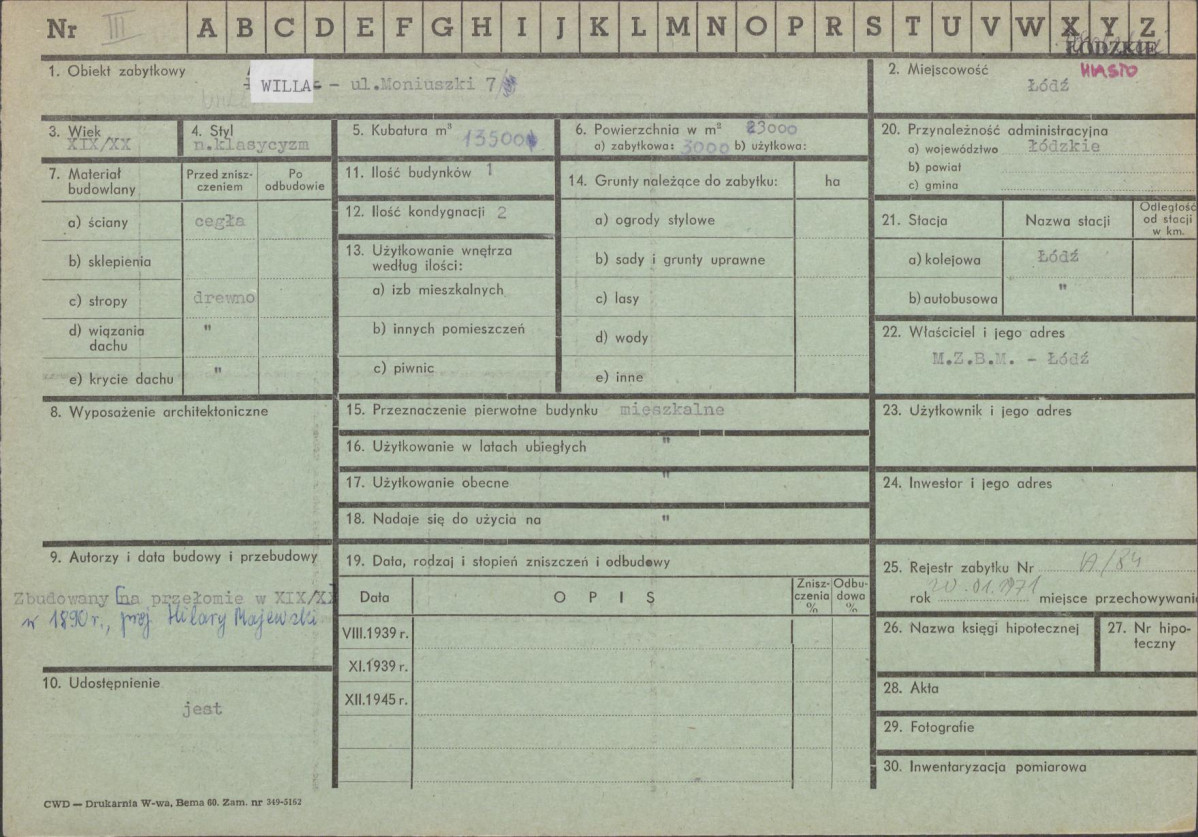 Nr III A B C D E F G H I J K L M N O P R S T U V W X Y Z
ŁÓDZKIE
MIASTO
1. Obiekt zabytkowy
WILLA - ul.Moniuszki 7
2. Miejscowość
Łódź
3. Wiek
XIX/XX
4. Styl
n.klasycyzm
5. Kubatura m³
13500
6. Powierzchnia w m²
23000
a) zabytkowa: 3000 b) użytkowa:
20. Przynależność administracyjna
a) województwo Łódzkie
b) powiat
c) gmina
7. Materiał budowlany
Przed znisz-
czeniem
Po
odbudowie
a) ściany cegła
b) sklepienia
c) stropy drewno
d) wiązania dachu "
e) krycie dachu "
11. Ilość budynków 1
12. Ilość kondygnacji 2
13. Użytkowanie wnętrza
według ilości:
a) izb mieszkalnych
b) innych pomieszczeń
c) piwnic
14. Grunty należące do zabytku: ha
a) ogrody stylowe
b) sady i grunty uprawne
c) lasy
d) wody
e) inne
21. Stacja Nazwa stacji
Odległość
od stacji
w km.
a) kolejowa Łódź
b) autobusowa "
22. Właściciel i jego adres
M.Z.B.M. - Łódź
8. Wyposażenie architektoniczne
15. Przeznaczenie pierwotne budynku mieszkalne
16. Użytkowanie w latach ubiegłych "
17. Użytkowanie obecne "
18. Nadaje się do użycia na "
23. Użytkownik i jego adres
24. Inwestor i jego adres
9. Autorzy i data budowy i przebudowy
Zbudowany na przełomie w XIX/XX
w 1890 r., proj. Hilary Majewski
10. Udostępnienie
jest
19. Data, rodzaj i stopień zniszczeń i odbudowy
Data O P I S
Znisz-
czenia
%
Odbu-
dowa
%
VIII.1939 r.
XI.1939 r.
XII.1945 r.
25. Rejestr zabytku Nr A/84
rok 20.01.1971 miejsce przechowywani
26. Nazwa księgi hipotecznej
27. Nr hipo-
teczny
28. Akta
29. Fotografie
30. Inwentaryzacja pomiarowa
CWD — Drukarnia W-wa, Bema 60. Zam. nr 349-5162